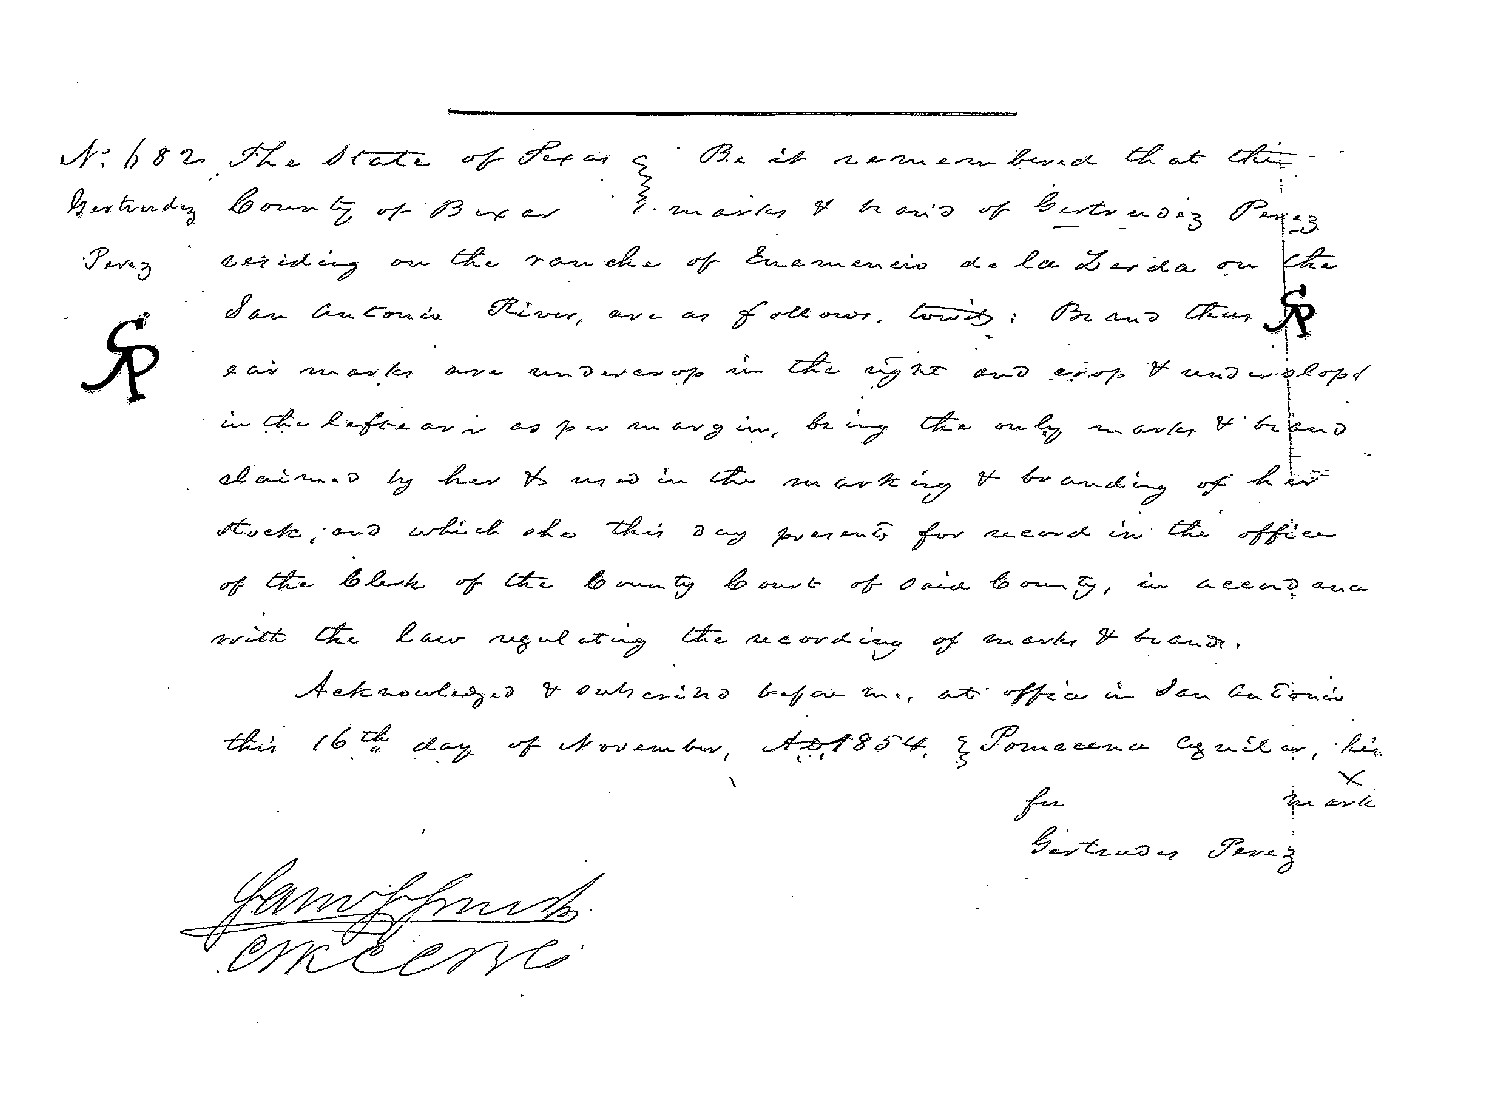 No. 682 The State of Texas } Be it remembered that the
Gertrudez County of Bexar } marks & brand of Gertrudez Perez
Perez residing on the ranche of Enemencio de la Zerda on the
San Antonio River, are as follows, towit: Brand thus
ear marks are undercrop in the right and crop & underslope
in the left ear as per margin, being the only marks & brand
claimed by her & used in the marking & branding of her
stock, and which she this day presents for record in the office
of the Clerk of the County Court of said County, in accordance
with the law regulating the recording of marks & brands.
Acknowledged & subscribed before me, at office in San Antonio
this 16th day of November, AD, 1854. } Pomucena Aguilar, his
x
for mark
Gertrudes Perez
CMKCCCBC